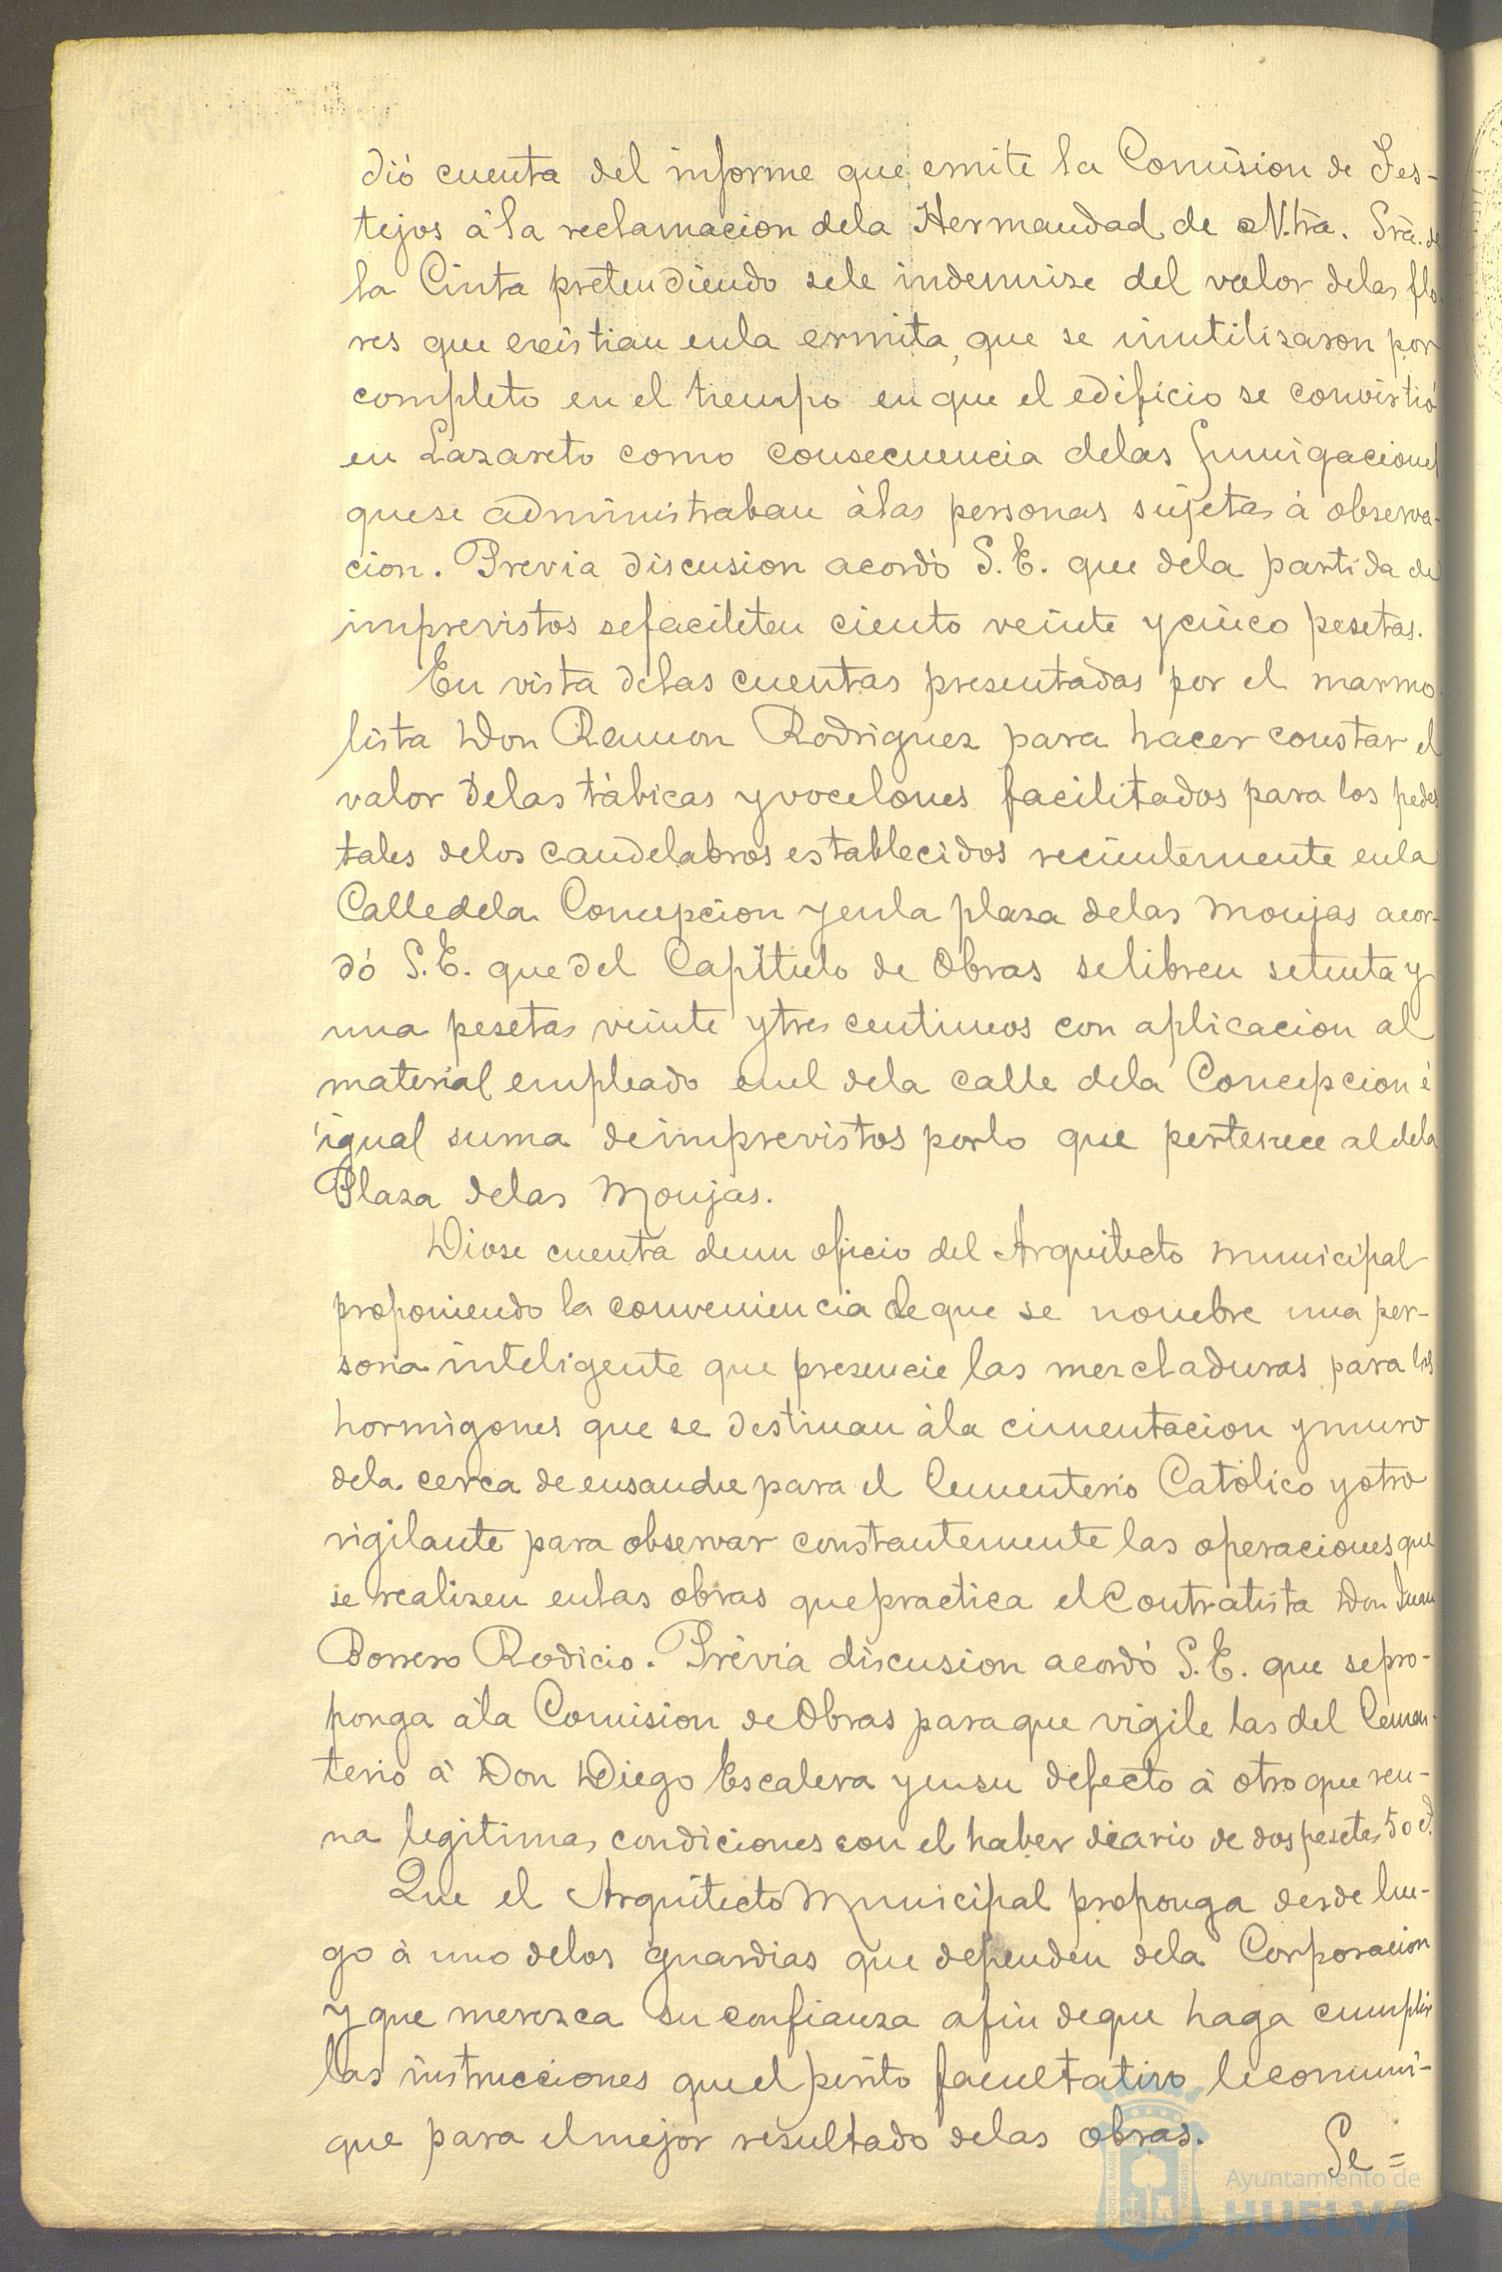 dió cuenta del informe que emite la Comision de Fes-
tejos á la reclamacion dela Hermandad de Ntra. Sra. de
la Cinta pretendiendo sele indemnise del valor delas flo
res que existian enla ermita, que se inutilizaron por
completo en el tiempo en que el edificio se convirtió
en Lazareto como consecuencia delas fumigaciones
quese administraban álas personas sujetas á observa-
cion. Previa discusion acordó S. E. que dela partida de
imprevistos sefaciliten ciento veinte ycinco pesetas.
En vista delas cuentas presentadas por el marmo
lista Don Ramon Rodriguez para hacer constar el
valor delas tábicas yvocelones facilitados para los pedes
tales delos candelabros establecidos recientemente enla
Calle dela Concepcion yenla plaza delas Monjas acor-
dó S. E. que del Capítulo de Obras selibren setenta y
una pesetas veinte ytres centimos con aplicacion al
material empleado enel dela calle dela Concepcion é
igual suma deimprevistos porlo que pertenece aldela
Plaza delas Monjas.
Diose cuenta deun oficio del Arquitecto municipal
proponiendo la conveniencia de que se nombre una per-
sona inteligente que presencie las mezcladuras para los
hormigones que se destinan ála cimentacion ymuro
dela cerca de ensanche para el Cementerio Católico yotro
vigilante para observar constantemente las operaciones que
se realizen enlas obras quepractica elContratista Don Juan
Borrero Rodicio. Prévia discusion acordó S. E. que sepro-
ponga ála Comision deObras paraque vigile las del Cemen-
terio á Don Diego Escalera yensu defecto á otro que reu-
na legitimas condiciones con el haber diario de dospesetas 50 ct.
Que el Arquitecto Municipal proponga desde lue-
go á uno delos guardias que dependen dela Corporacion
y que merezca su confianza afin deque haga cumplir
las instrucciones queel perito facultativo lecomuni-
que para elmejor resultado delas obras.
Se =
Ayuntamiento de
HUELVA